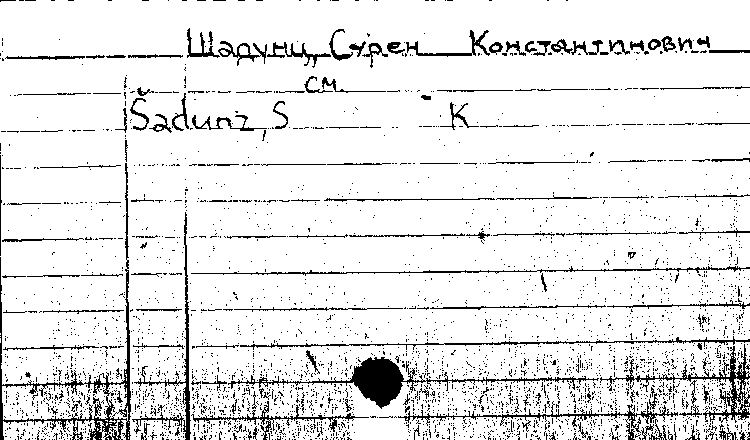 Шадунц, Сурен Константинович
см.
Šadunz, S K